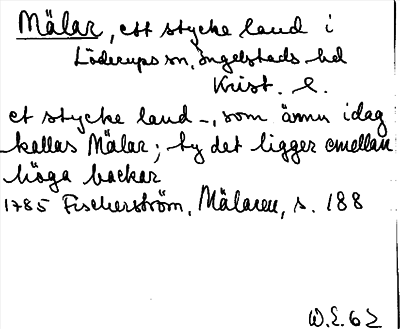 Mälar, ett stycke land i
Löderups sn, Ingelstads hd
Krist. l.
et stycke land –, som ännu idag
kallas Mälar; ty det ligger emellan
höga backar
1785 Fischerström, Mälaren, s. 188
W.E. 62